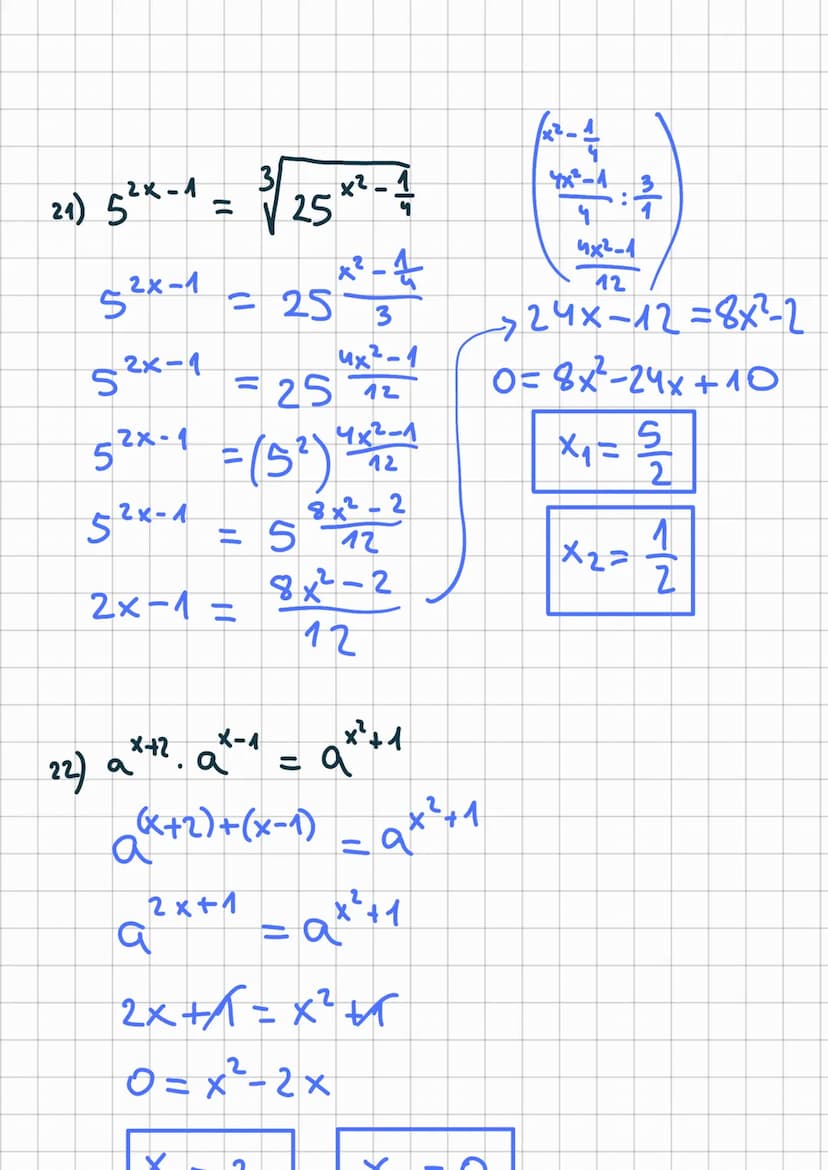 21) 5^{2x-1} = \sqrt[3]{25^{x^2-\frac{1}{4}}}
5^{2x-1} = 25^{\frac{x^2-\frac{1}{4}}{3}}
5^{2x-1} = 25^{\frac{4x^2-1}{12}}
5^{2x-1} = (5^2)^{\frac{4x^2-1}{12}}
5^{2x-1} = 5^{\frac{8x^2-2}{12}}
2x-1 = \frac{8x^2-2}{12}
(x^2-\frac{1}{4}
\frac{4x^2-1}{4} : \frac{3}{1}
\frac{4x^2-1}{12})
→ 24x-12 = 8x^2-2
0 = 8x^2-24x+10
x_1 = \frac{5}{2}
x_2 = \frac{1}{2}
22) a^{x+2} · a^{x-1} = a^{x^2+1}
a^{(x+2)+(x-1)} = a^{x^2+1}
a^{2x+1} = a^{x^2+1}
2x+1 = x^2+1
0 = x^2-2x